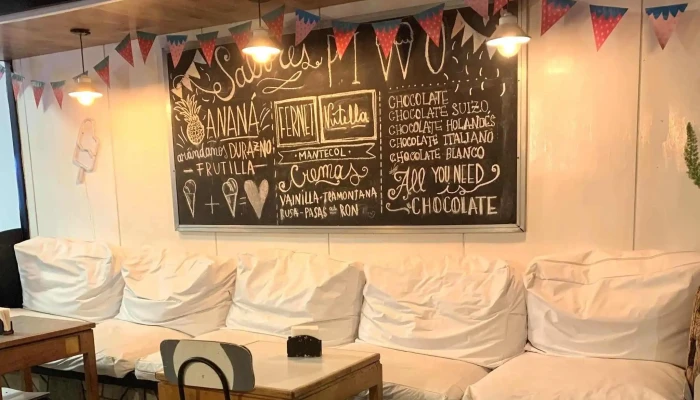 Sabores PIWU
ANANÁ
arándanos DURAZNO
FRUTILLA
FERNET
MANTECOL
Cremas
VAINILLA-TRAMONTANA
PASAS al RON
CHOCOLATE
CHOCOLATE SUIZO
CHOCOLATE HOLANDÉS
CHOCOLATE ITALIANO
CHOCOLATE BLANCO
All YOU NEED
is
CHOCOLATE